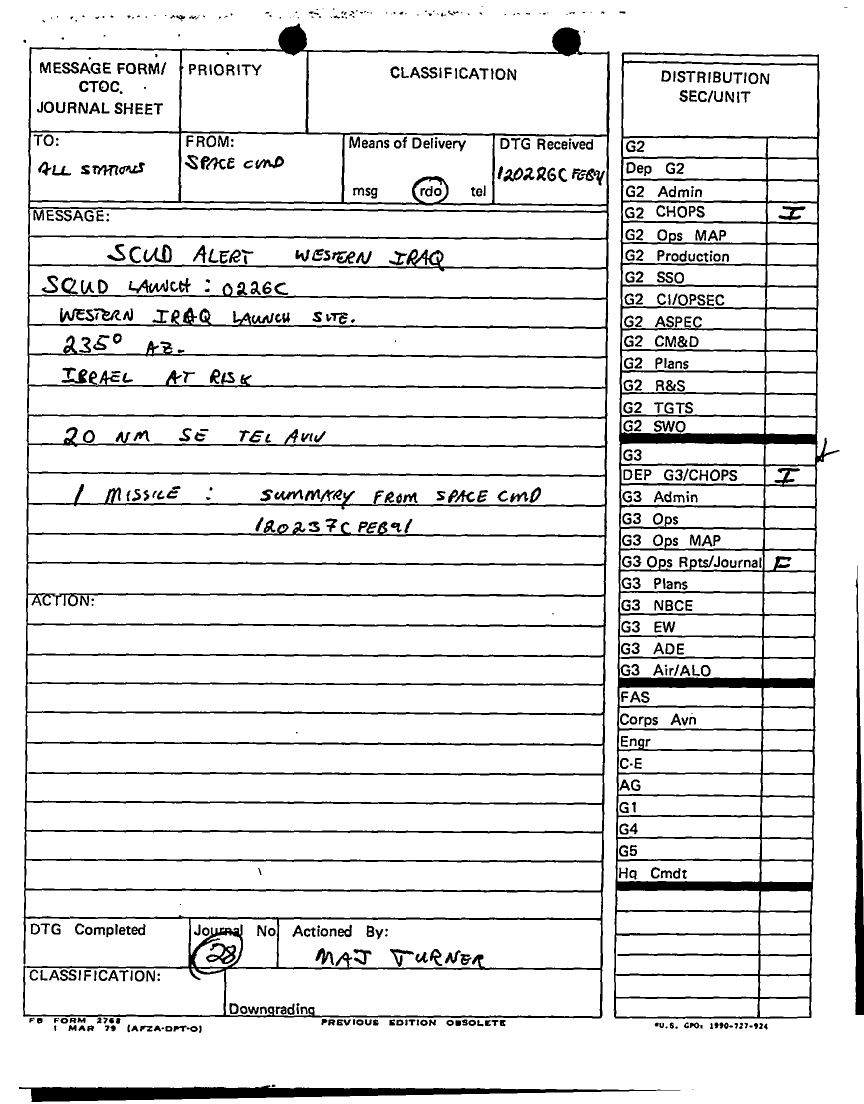 MESSAGE FORM/
CTOC.
JOURNAL SHEET
PRIORITY
CLASSIFICATION
TO:
ALL STATIONS
FROM:
SPACE CMD
Means of Delivery
msg rdo tel
DTG Received
120226C FEB91
MESSAGE:
SCUD ALERT WESTERN IRAQ
SCUD LAUNCH : 0226C
WESTERN IRAQ LAUNCH SITE.
235° AZ.
ISRAEL AT RISK
20 NM SE TEL AVIV
1 MISSILE : SUMMARY FROM SPACE CMD
120237C FEB91
ACTION:
DTG Completed
Journal No
28
Actioned By:
MAJ TURNER
CLASSIFICATION:
Downgrading
FB FORM 2768
1 MAR 79 (AFZA-DPT-O)
PREVIOUS EDITION OBSOLETE
DISTRIBUTION
SEC/UNIT
G2
Dep G2
G2 Admin
G2 CHOPS I
G2 Ops MAP
G2 Production
G2 SSO
G2 CI/OPSEC
G2 ASPEC
G2 CM&D
G2 Plans
G2 R&S
G2 TGTS
G2 SWO
G3
DEP G3/CHOPS I
G3 Admin
G3 Ops
G3 Ops MAP
G3 Ops Rpts/Journal F
G3 Plans
G3 NBCE
G3 EW
G3 ADE
G3 Air/ALO
FAS
Corps Avn
Engr
C-E
AG
G1
G4
G5
Hq Cmdt
*U.S. GPO: 1990-727-924